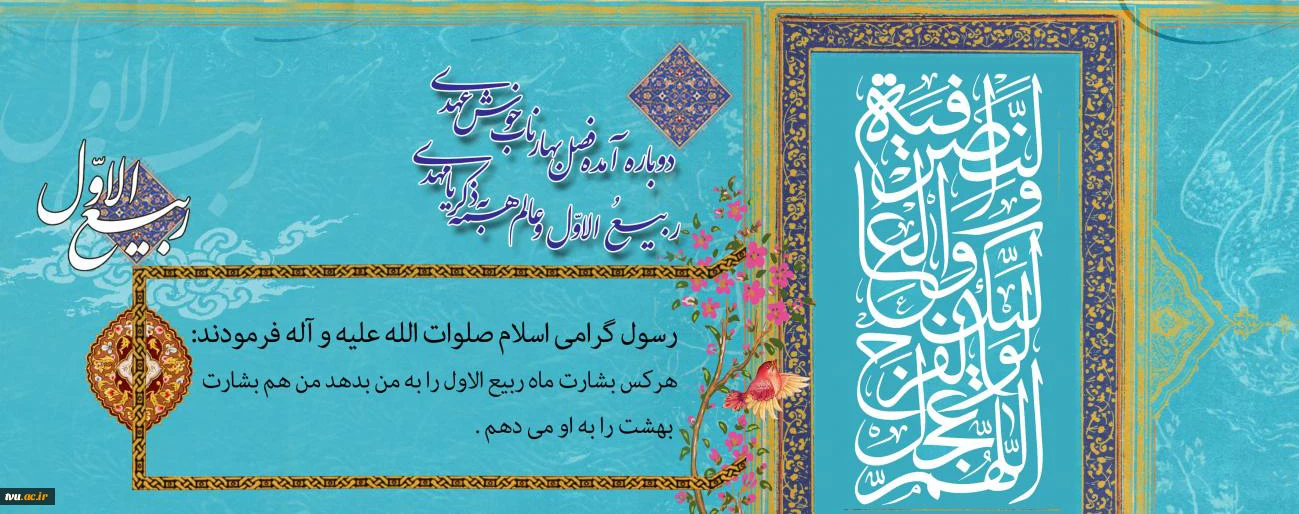 اللهم عجل لولیک الفرج
والعافیة والنصر
دوباره آمده فصل بهار ناب خوش عهدی
ربیعُ الاوّل و عالم همه به ذکر یا مهدی
ربیع الاوّل
رسول گرامی اسلام صلوات الله علیه و آله فرمودند:
هرکس بشارت ماه ربیع الاول را به من بدهد من هم بشارت
بهشت را به او می دهم .
ربیع الاوّل
tvu.ac.ir